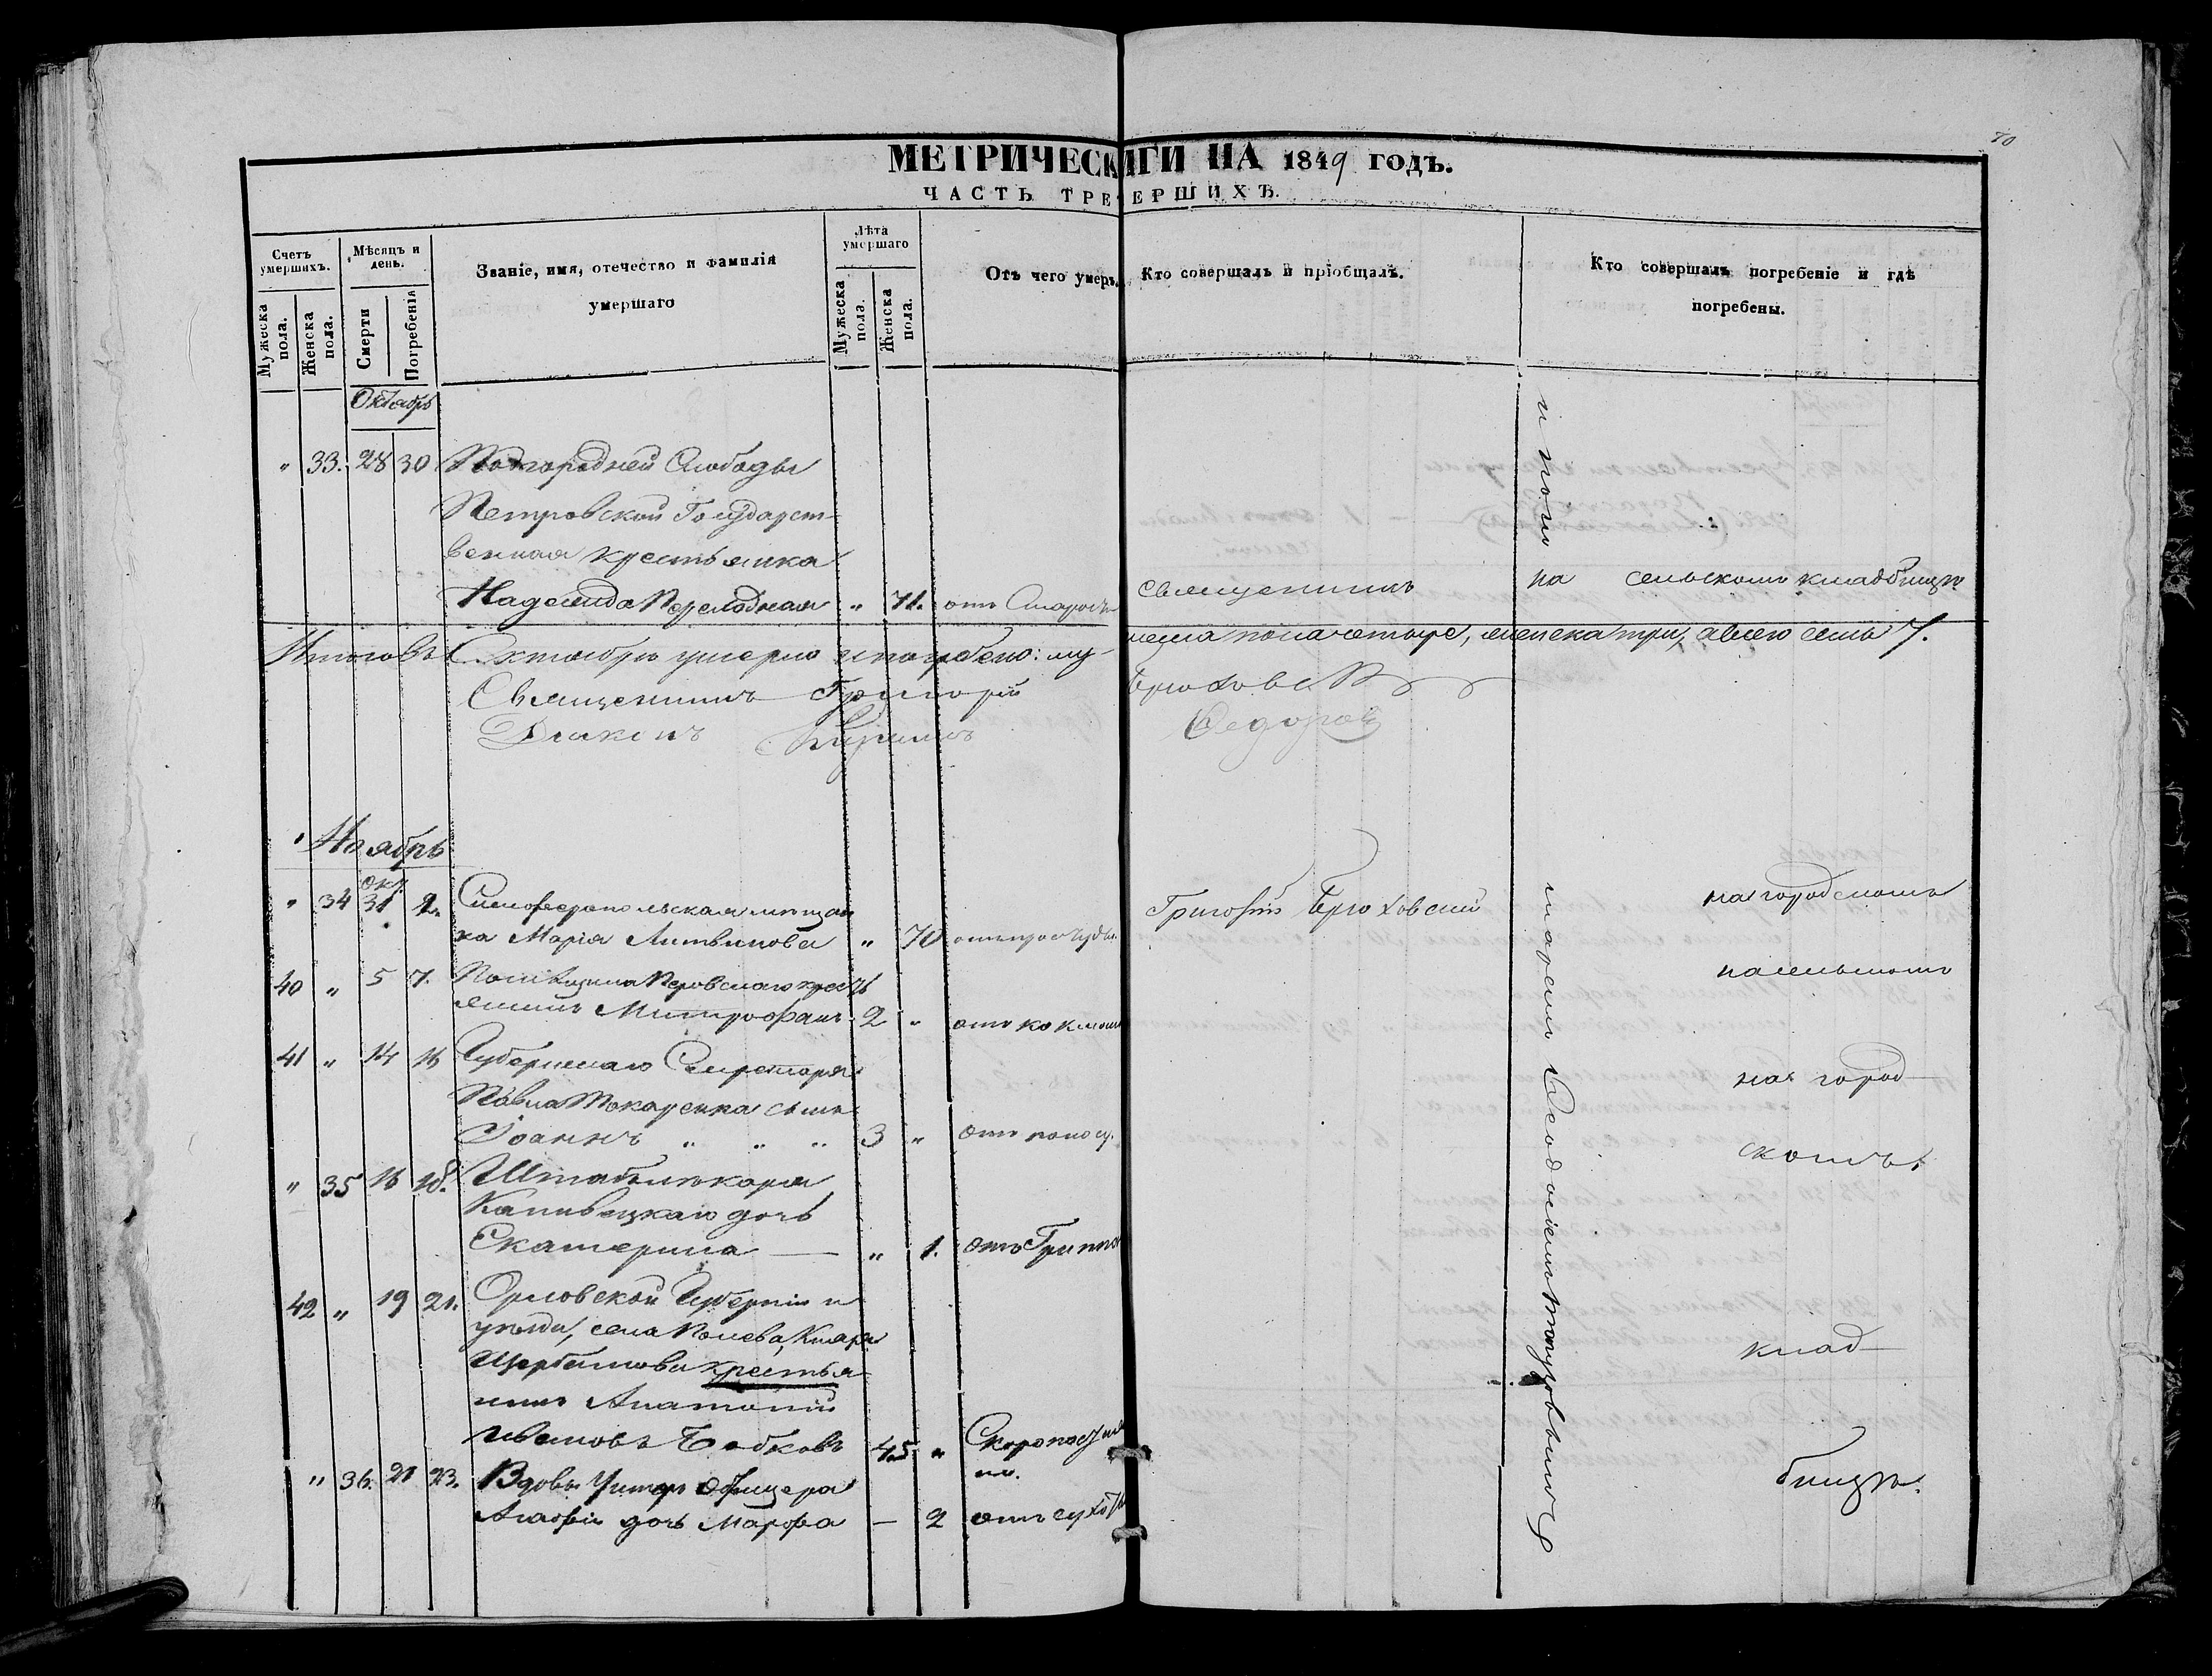 70
МЕТРИЧЕСК ИГИ НА 1849 ГОДЪ.
ЧАСТЬ ТРЕ ЕРШИХЪ.
Счетъ умершихъ.
Мѣсяцъ и день.
Званіе, имя, отечество и фамилія
умершаго
Лѣта умершаго
Отъ чего умеръ.
Кто совершалъ и пріобщалъ.
Кто совершалъ погребеніе и гдѣ
погребены.
Мужеска пола.
Женска пола.
Смерти
Погребенія
Мужеска пола.
Женска пола.
Октябрь
" 33. 28 30 Подгородней Слободы
Петровской Государст-
венная крестьянка
Надежда " 71. отъ Старости
священникъ
на сельскомъ кладбищѣ
Октябрѣ умерло и погребено: му-
жеска пола четыре, женска три, а всего семь 7.
Священникъ Григорій Брюховск
Діаконъ Федоровъ
Ноябрь
окт.
" 34 31 2. Симферопольская мѣщан
ка Марія Литвинова " 70 отъ простуды.
Григорій Брюховскій
на городскомъ
40 " 5 7.
Митрофанъ 2 " отъ коклюш
на сельскомъ
41 " 14 16 Губернскаго Секретаря
Павла Токаренка сынъ
Іоаннъ " " " 3 " отъ поносу.
на город
скомъ
" 35 16 18. Штабъ лѣкаря
дочь
Екатерина — " 1. отъ Гриппа
42 " 19 21. Орловской Губерніи и
уѣзда, села Князя
Щербатова крестья
нинъ
Ивановъ Бобковъ 45 " Скоропостиж
но.
клад
" 36. 21 23. Вдовы Унтеръ Офицера
дочь Марфа — 2 отъ сухот
бищѣ.